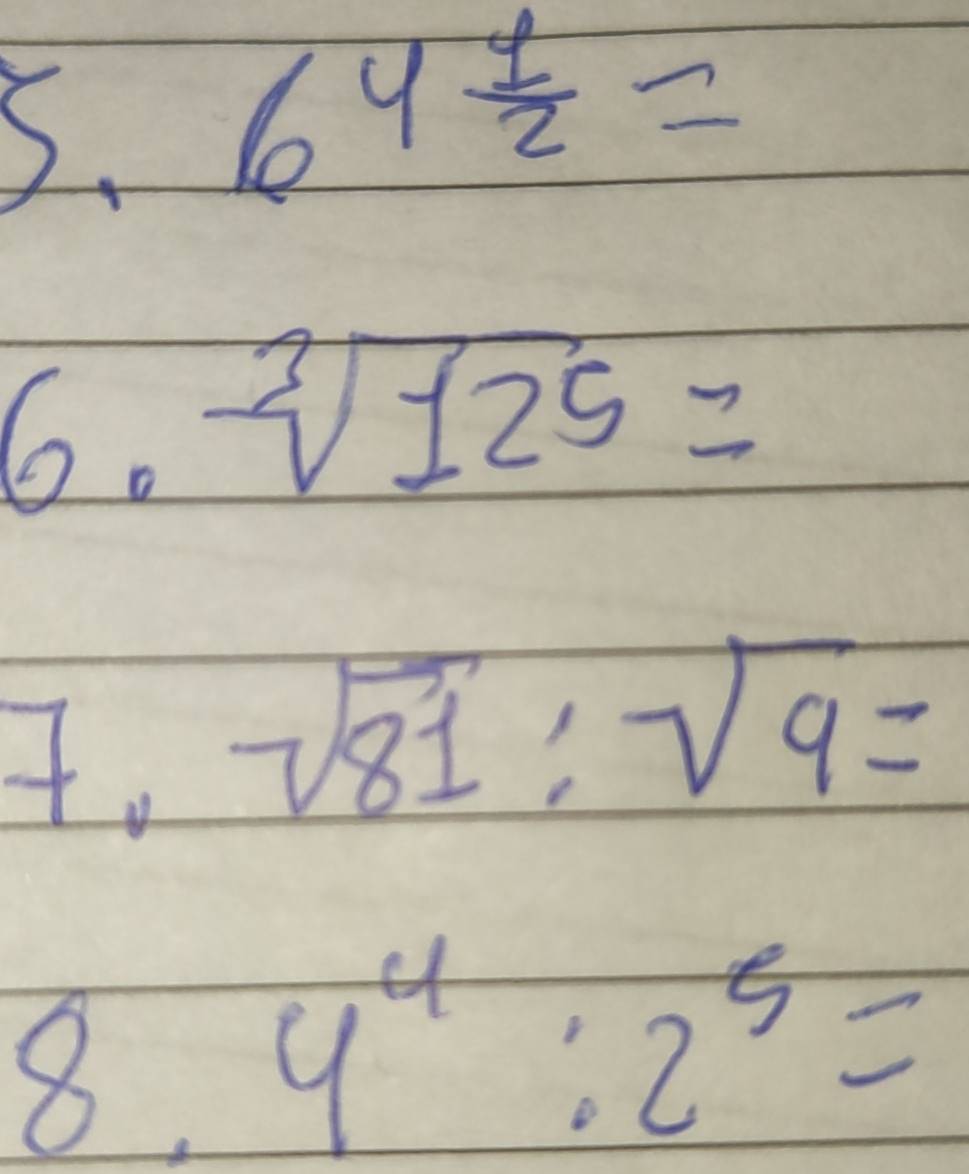 5. 64 1/2 =
6. ∛125 =
7. √81 : √9 =
8. 4⁴ : 2⁵ =